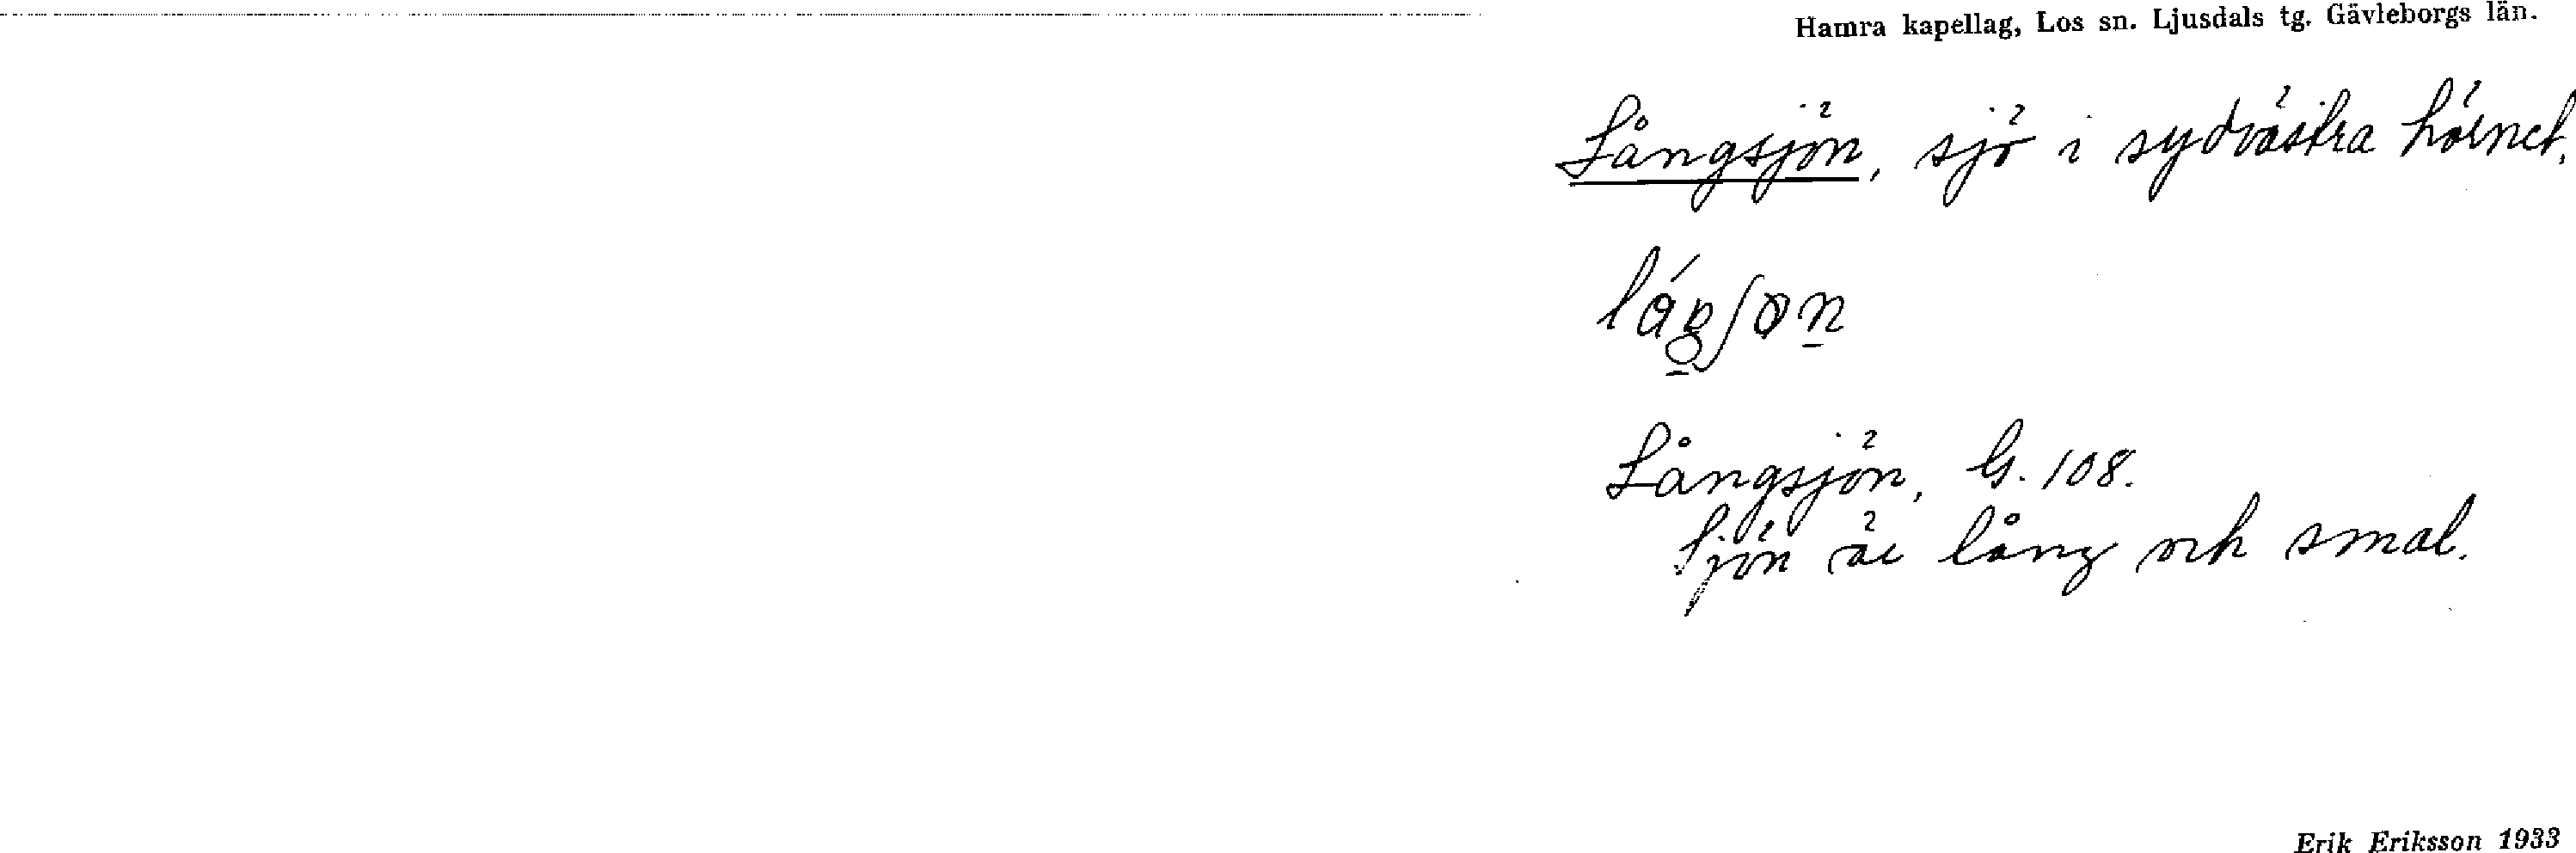 Hamra kapellag, Los sn. Ljusdals tg. Gävleborgs län.
Långsjön, sjö i sydvästra hörnet.
Långsjön, G. 108.
Sjön är lång och smal.
Erik Eriksson 1933